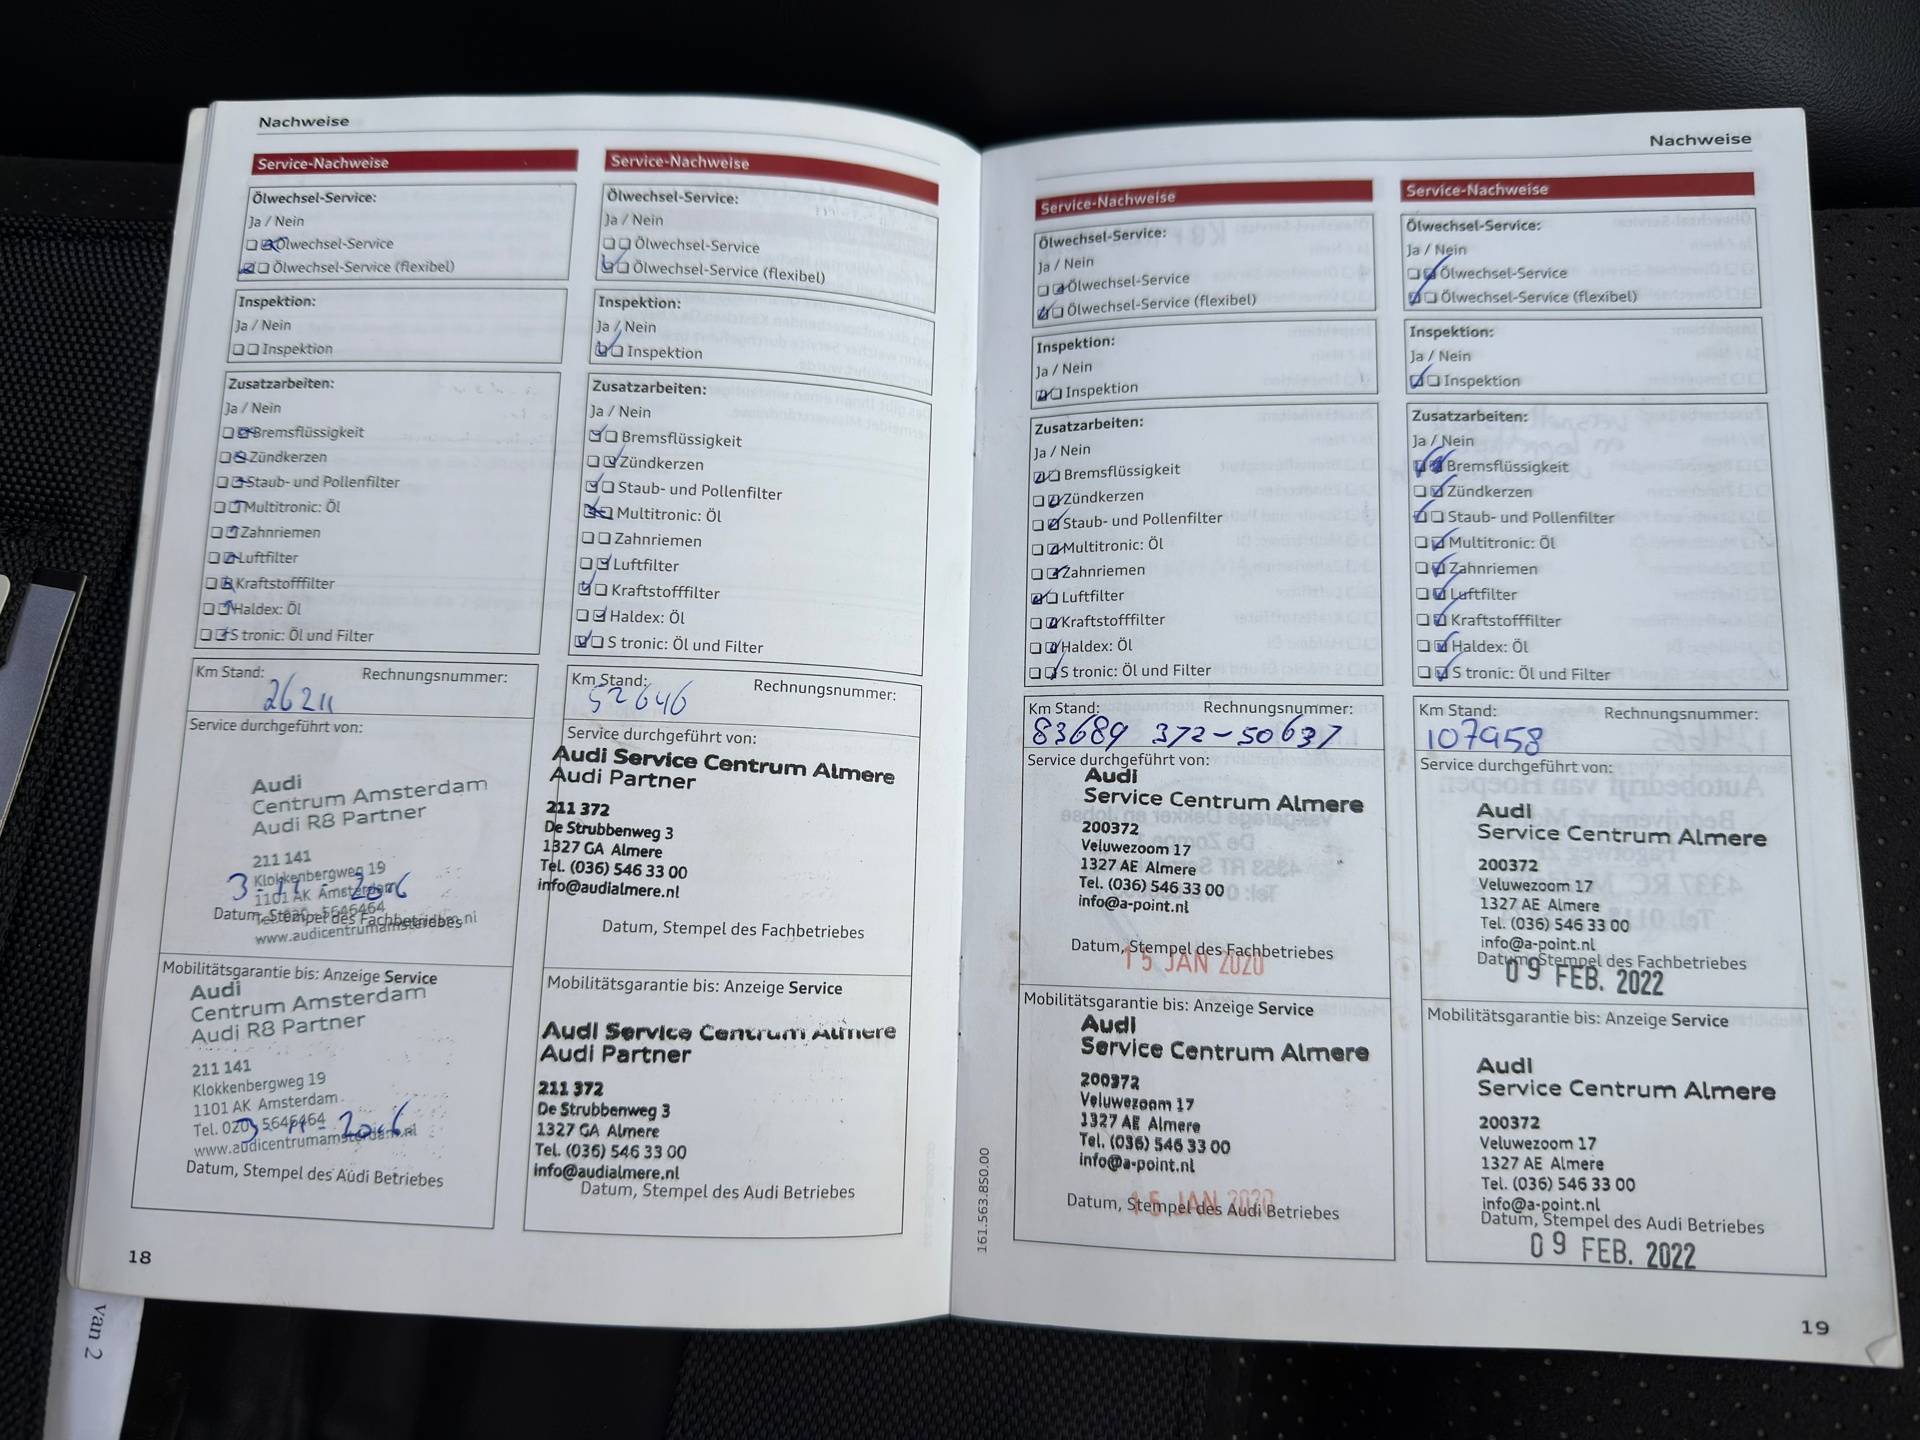 Nachweise
Service-Nachweise
Ölwechsel-Service:
Ja / Nein
Ölwechsel-Service
Ölwechsel-Service (flexibel)
Inspektion:
Ja / Nein
Inspektion
Zusatzarbeiten:
Ja / Nein
Bremsflüssigkeit
Zündkerzen
Staub- und Pollenfilter
Multitronic: Öl
Zahnriemen
Luftfilter
Kraftstofffilter
Haldex: Öl
S tronic: Öl und Filter
Km Stand: Rechnungsnummer:
26211
Service durchgeführt von:
Audi
Centrum Amsterdam
Audi R8 Partner
211 141
Klokkenbergweg 19
1101 AK Amsterdam
Datum, Stempel des Fachbetriebes
www.audicentrumamsterdam.nl
Mobilitätsgarantie bis: Anzeige Service
Audi
Centrum Amsterdam
Audi R8 Partner
211 141
Klokkenbergweg 19
1101 AK Amsterdam
Tel. 020 - 5646464
www.audicentrumamsterdam.nl
Datum, Stempel des Audi Betriebes
18
Service-Nachweise
Ölwechsel-Service:
Ja / Nein
Ölwechsel-Service
Ölwechsel-Service (flexibel)
Inspektion:
Ja / Nein
Inspektion
Zusatzarbeiten:
Ja / Nein
Bremsflüssigkeit
Zündkerzen
Staub- und Pollenfilter
Multitronic: Öl
Zahnriemen
Luftfilter
Kraftstofffilter
Haldex: Öl
S tronic: Öl und Filter
Km Stand: Rechnungsnummer:
52646
Service durchgeführt von:
Audi Service Centrum Almere
Audi Partner
211 372
De Strubbenweg 3
1327 GA Almere
Tel. (036) 546 33 00
info@audialmere.nl
Datum, Stempel des Fachbetriebes
Mobilitätsgarantie bis: Anzeige Service
Audi Service Centrum Almere
Audi Partner
211 372
De Strubbenweg 3
1327 GA Almere
Tel. (036) 546 33 00
info@audialmere.nl
Datum, Stempel des Audi Betriebes
Nachweise
Service-Nachweise
Ölwechsel-Service:
Ja / Nein
Ölwechsel-Service
Ölwechsel-Service (flexibel)
Inspektion:
Ja / Nein
Inspektion
Zusatzarbeiten:
Ja / Nein
Bremsflüssigkeit
Zündkerzen
Staub- und Pollenfilter
Multitronic: Öl
Zahnriemen
Luftfilter
Kraftstofffilter
Haldex: Öl
S tronic: Öl und Filter
Km Stand: Rechnungsnummer:
83689 372-50637
Service durchgeführt von:
Audi
Service Centrum Almere
200372
Veluwezoom 17
1327 AE Almere
Tel. (036) 546 33 00
info@a-point.nl
Datum, Stempel des Fachbetriebes
15 JAN 2020
Mobilitätsgarantie bis: Anzeige Service
Audi
Service Centrum Almere
200372
Veluwezoom 17
1327 AE Almere
Tel. (036) 546 33 00
info@a-point.nl
15 JAN 2020
Datum, Stempel des Audi Betriebes
161.563.850.00
Service-Nachweise
Ölwechsel-Service:
Ja / Nein
Ölwechsel-Service
Ölwechsel-Service (flexibel)
Inspektion:
Ja / Nein
Inspektion
Zusatzarbeiten:
Ja / Nein
Bremsflüssigkeit
Zündkerzen
Staub- und Pollenfilter
Multitronic: Öl
Zahnriemen
Luftfilter
Kraftstofffilter
Haldex: Öl
S tronic: Öl und Filter
Km Stand: Rechnungsnummer:
107958
Service durchgeführt von:
Audi
Service Centrum Almere
200372
Veluwezoom 17
1327 AE Almere
Tel. (036) 546 33 00
info@a-point.nl
Datum, Stempel des Fachbetriebes
09 FEB. 2022
Mobilitätsgarantie bis: Anzeige Service
Audi
Service Centrum Almere
200372
Veluwezoom 17
1327 AE Almere
Tel. (036) 546 33 00
info@a-point.nl
Datum, Stempel des Audi Betriebes
09 FEB. 2022
19
van 2